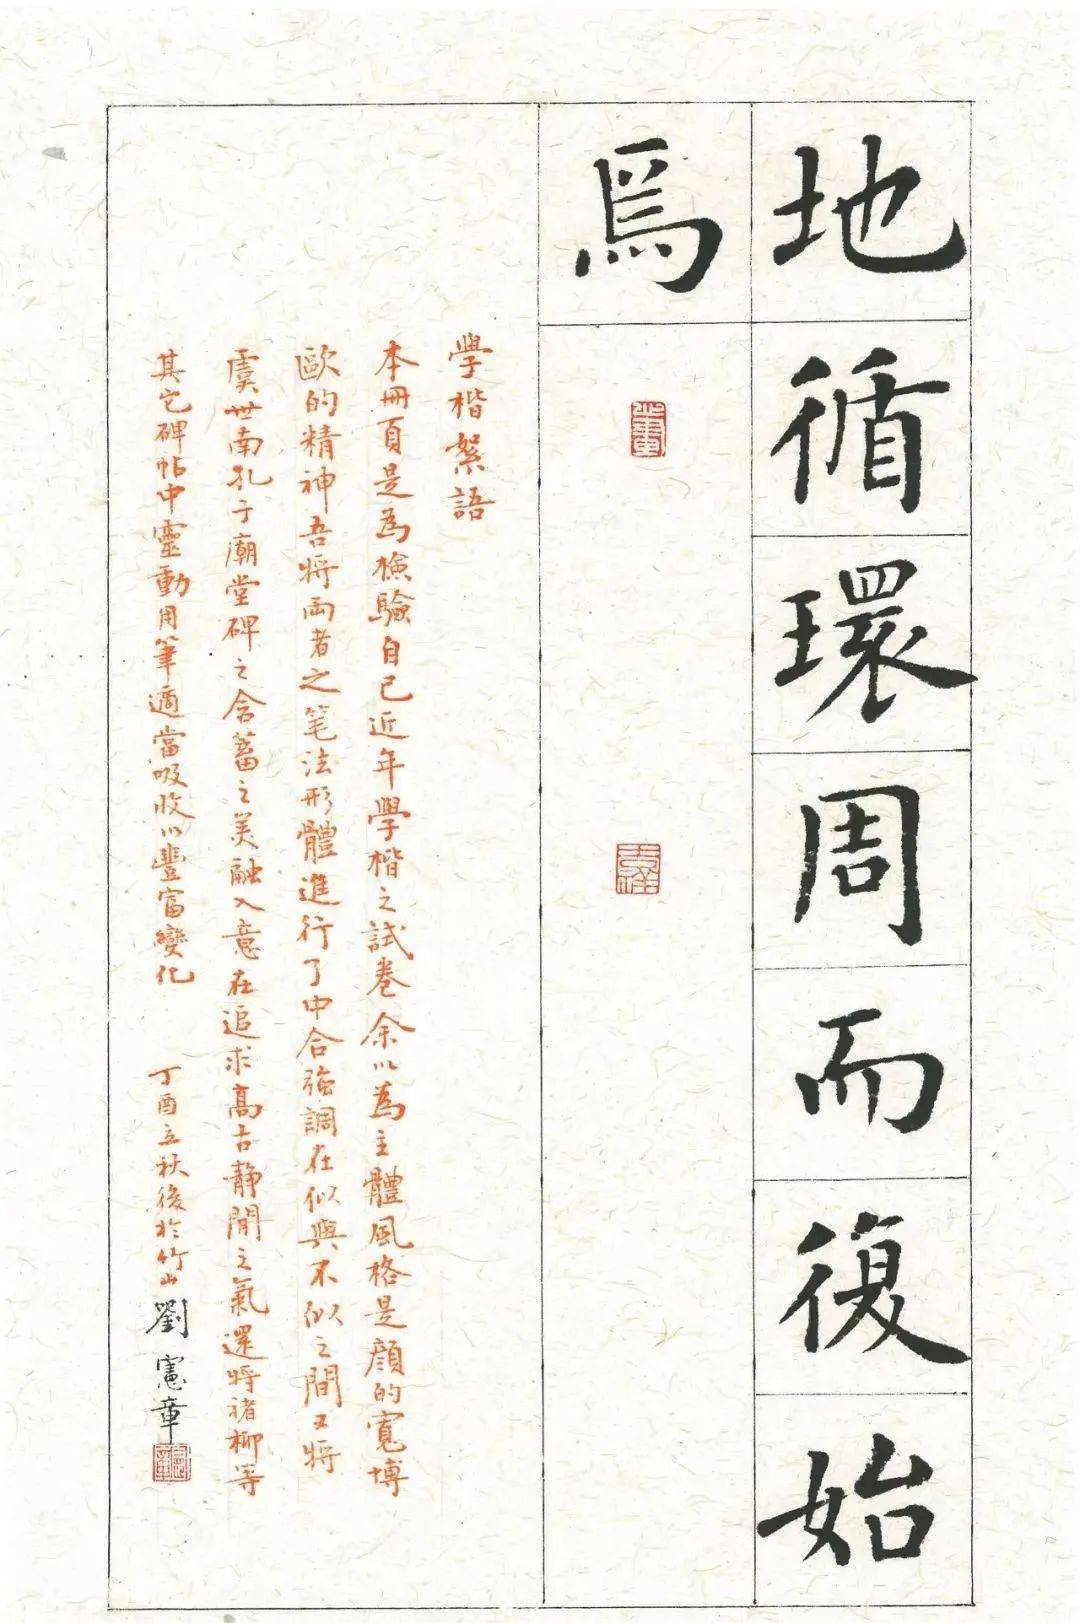 地循環周而復始
焉
學楷絮語
本冊頁是為檢驗自己近年學楷之試卷余以為主體風格是顔的寬博
歐的精神吾將兩者之笔法形體進行了中合強調在似與不似之間又將
虞世南孔子廟堂碑之含蓄之美融入意在追求高古静閒之氣還將褚柳等
其它碑帖中靈動用筆適當吸收以豐富變化 丁酉立秋後於竹山劉憲章